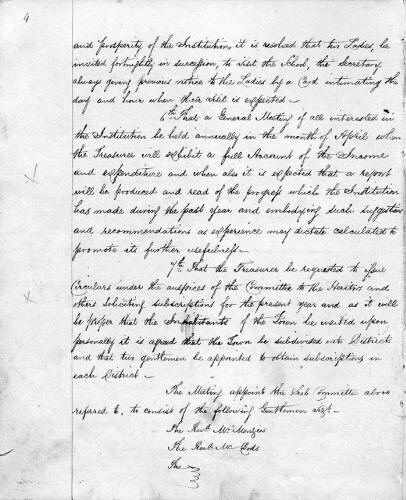 4
and prosperity of the Institution, it is resolved that two Ladies, be
invited fortnightly in succession, to visit the School, the Secretary
always giving previous notice to the Ladies by a Card intimating the
day and hour when their visit is expected -
6th That a General Meeting of all interested in
the Institution be held annually in the month of April when
the Treasurer will exhibit a full Account of the Income
and expenditure and when also it is expected that a report
will be produced and read of the progress which the Institution
has made during the past year and embodying such suggestions
and recommendations as experience may dictate calculated to
promote its further usefulness -
7th That the Treasurer be requested to issue
Circulars under the auspices of the Committee to the Heritors and
others soliciting subscriptions for the present year and as it will
be proper that the Inhabitants of the Town be waited upon
personally it is agreed that the Town be subdivided into Districts
and that two gentlemen be appointed to obtain subscriptions in
each District -
The Meeting appoint the Sub Committee above
referred to, to consist of the following Gentlemen vizt -
The Revd. Mr. Menzies
The Revd. Mr. Dods
The